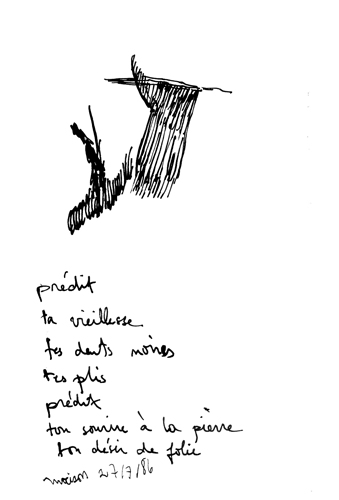 prédit
ta vieillesse
tes dents noires
tes plis
prédit
ton sourire à la pierre
ton désir de folie
27/7/86